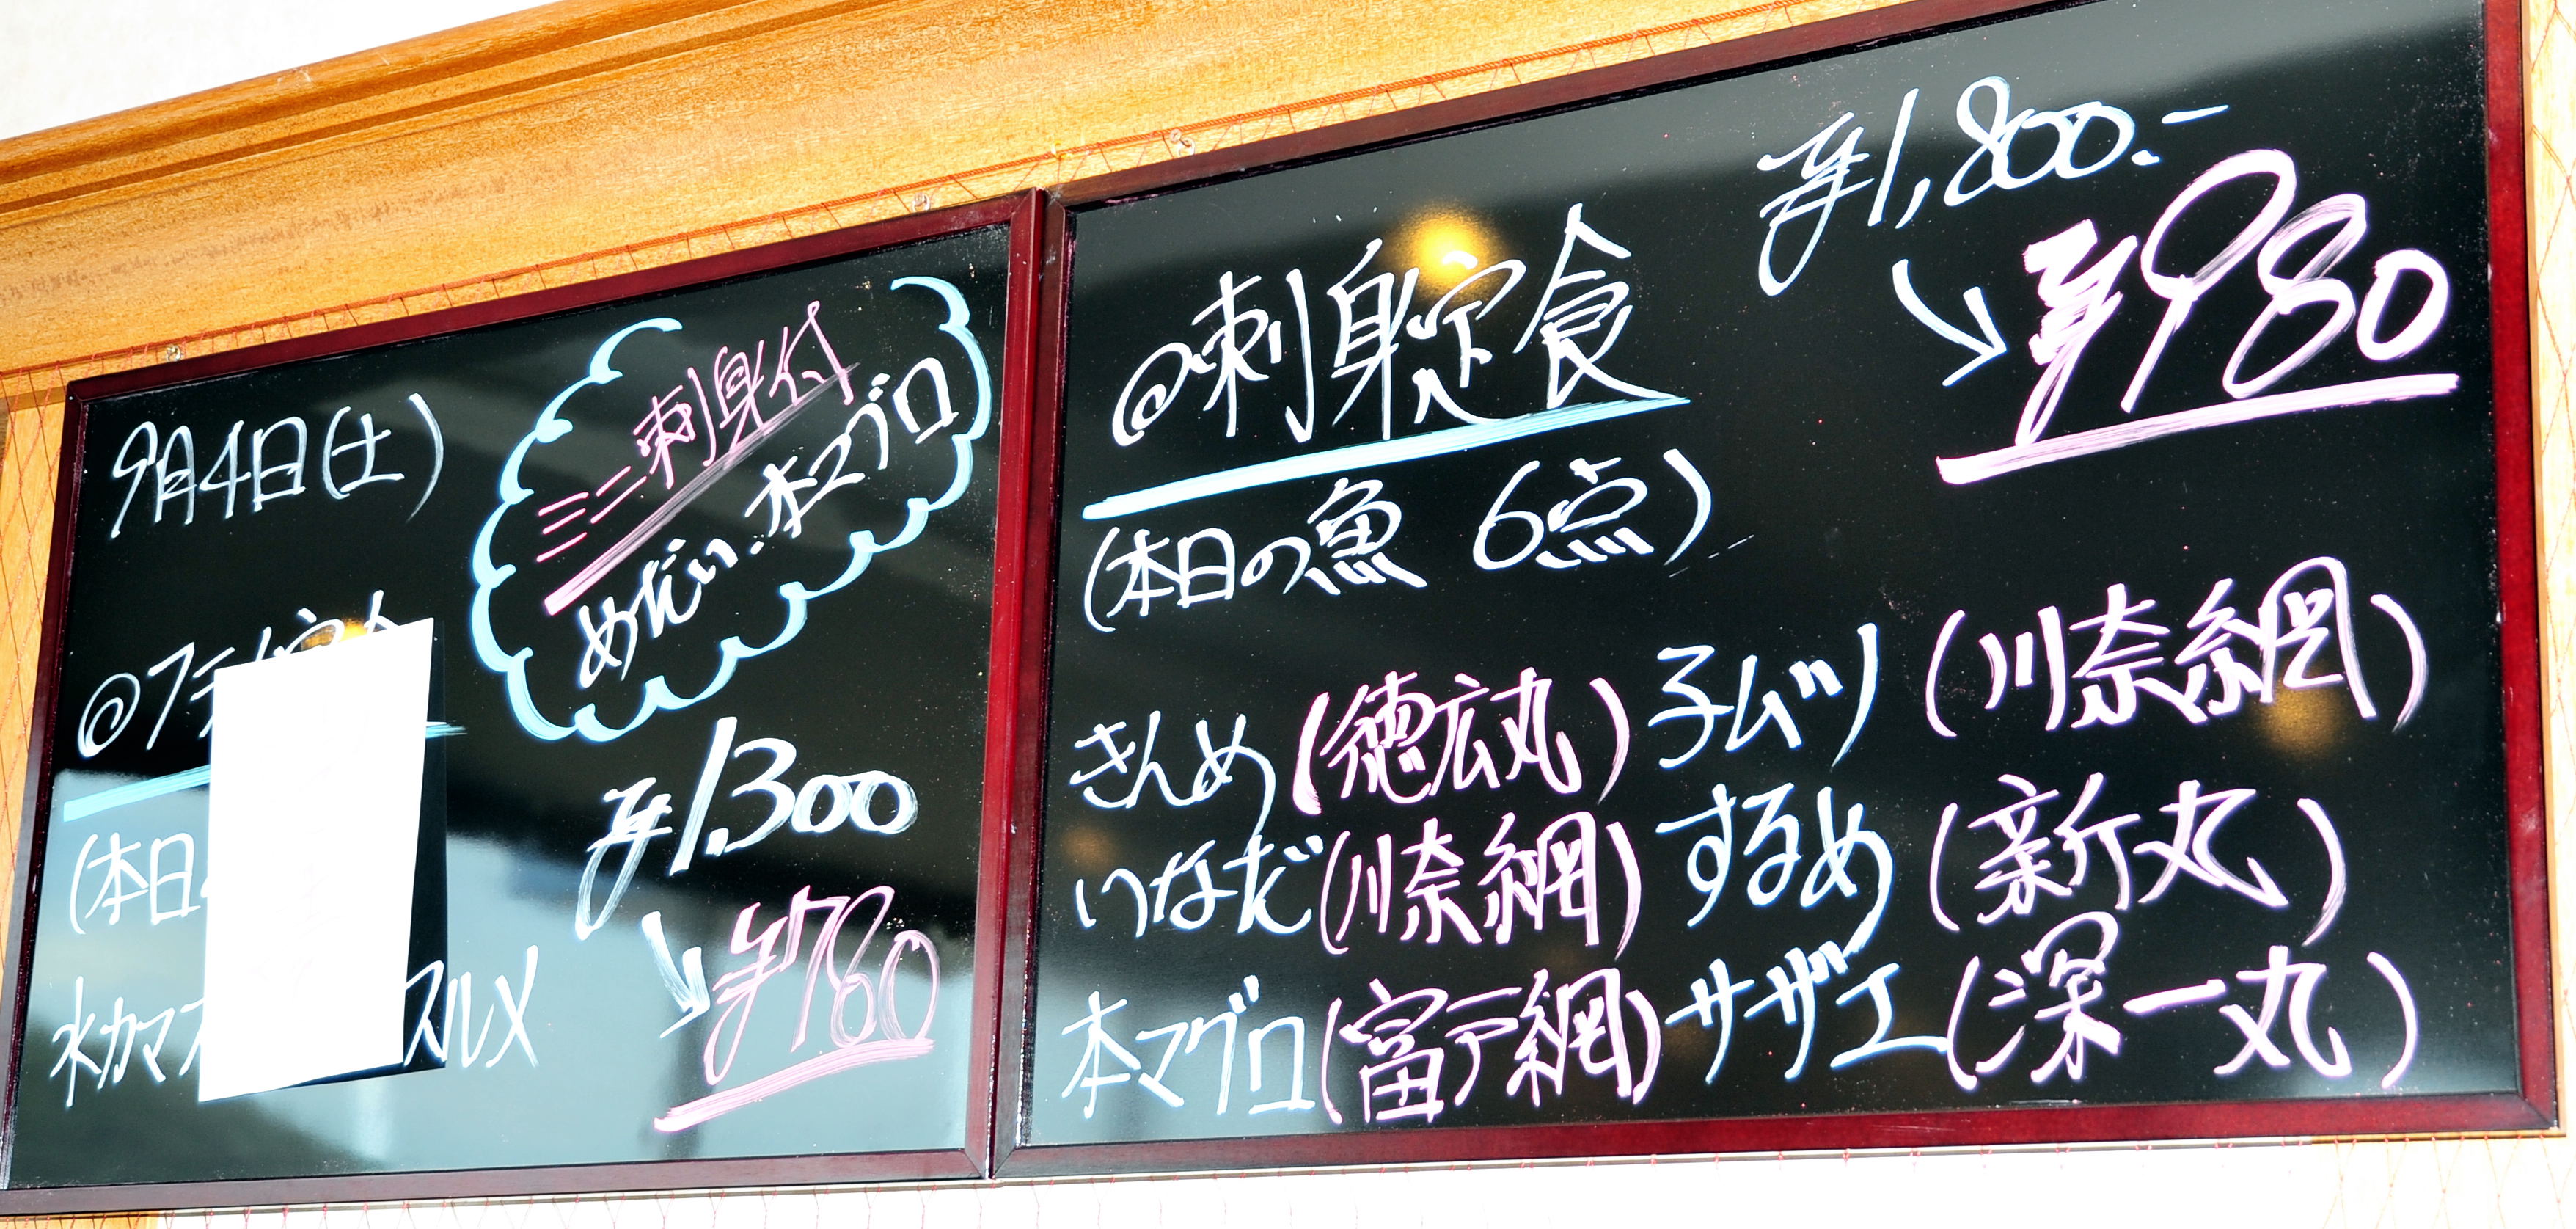 9月4日(土)
ミニ刺身付
めだい・本マグロ
@フラ
(本日
水カマス
スルメ
¥1.300
↓
¥760
@刺身定食
¥1,800.-
↓
¥980
(本日の魚 6点)
きんめ(徳広丸) 子ムツ(川奈網)
いなだ(川奈網) するめ(新丸)
本マグロ(富戸網) サザエ(深一丸)